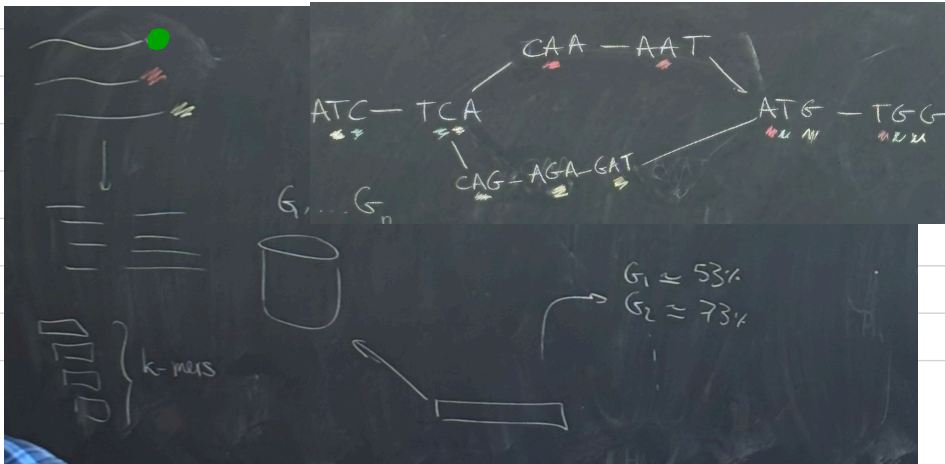 CAA — AAT
ATC — TCA
ATG — TGG
CAG - AGA - GAT
G₁ .... Gₙ
G₁ ≈ 53%
G₂ ≈ 73%
k-mers